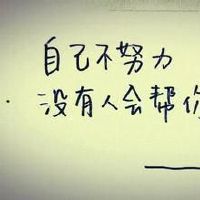 自己不努力
没有人会帮你